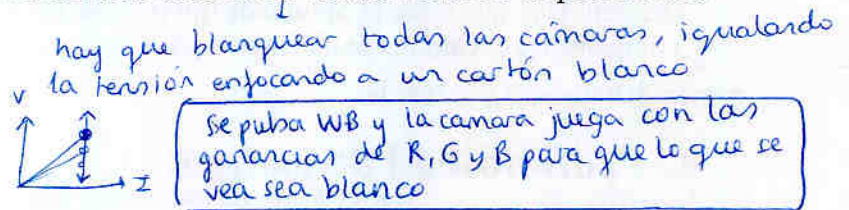 hay que blanquear todas las cámaras, igualando
la tensión enfocando a un cartón blanco
V
I
se pulsa WB y la camara juega con las
ganancias de R, G y B para que lo que se
vea sea blanco